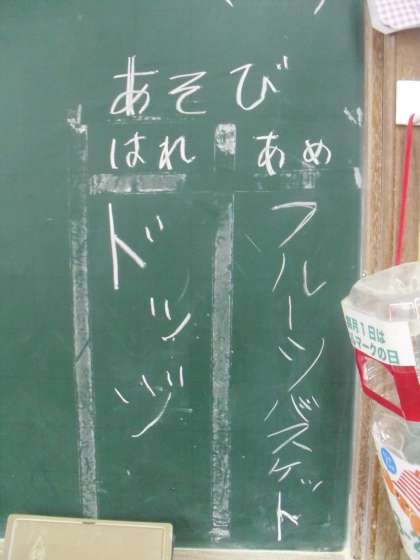 あそび
はれ
あめ
ドッヅ
フルーツバスケット
毎月1日は
ルマークの日